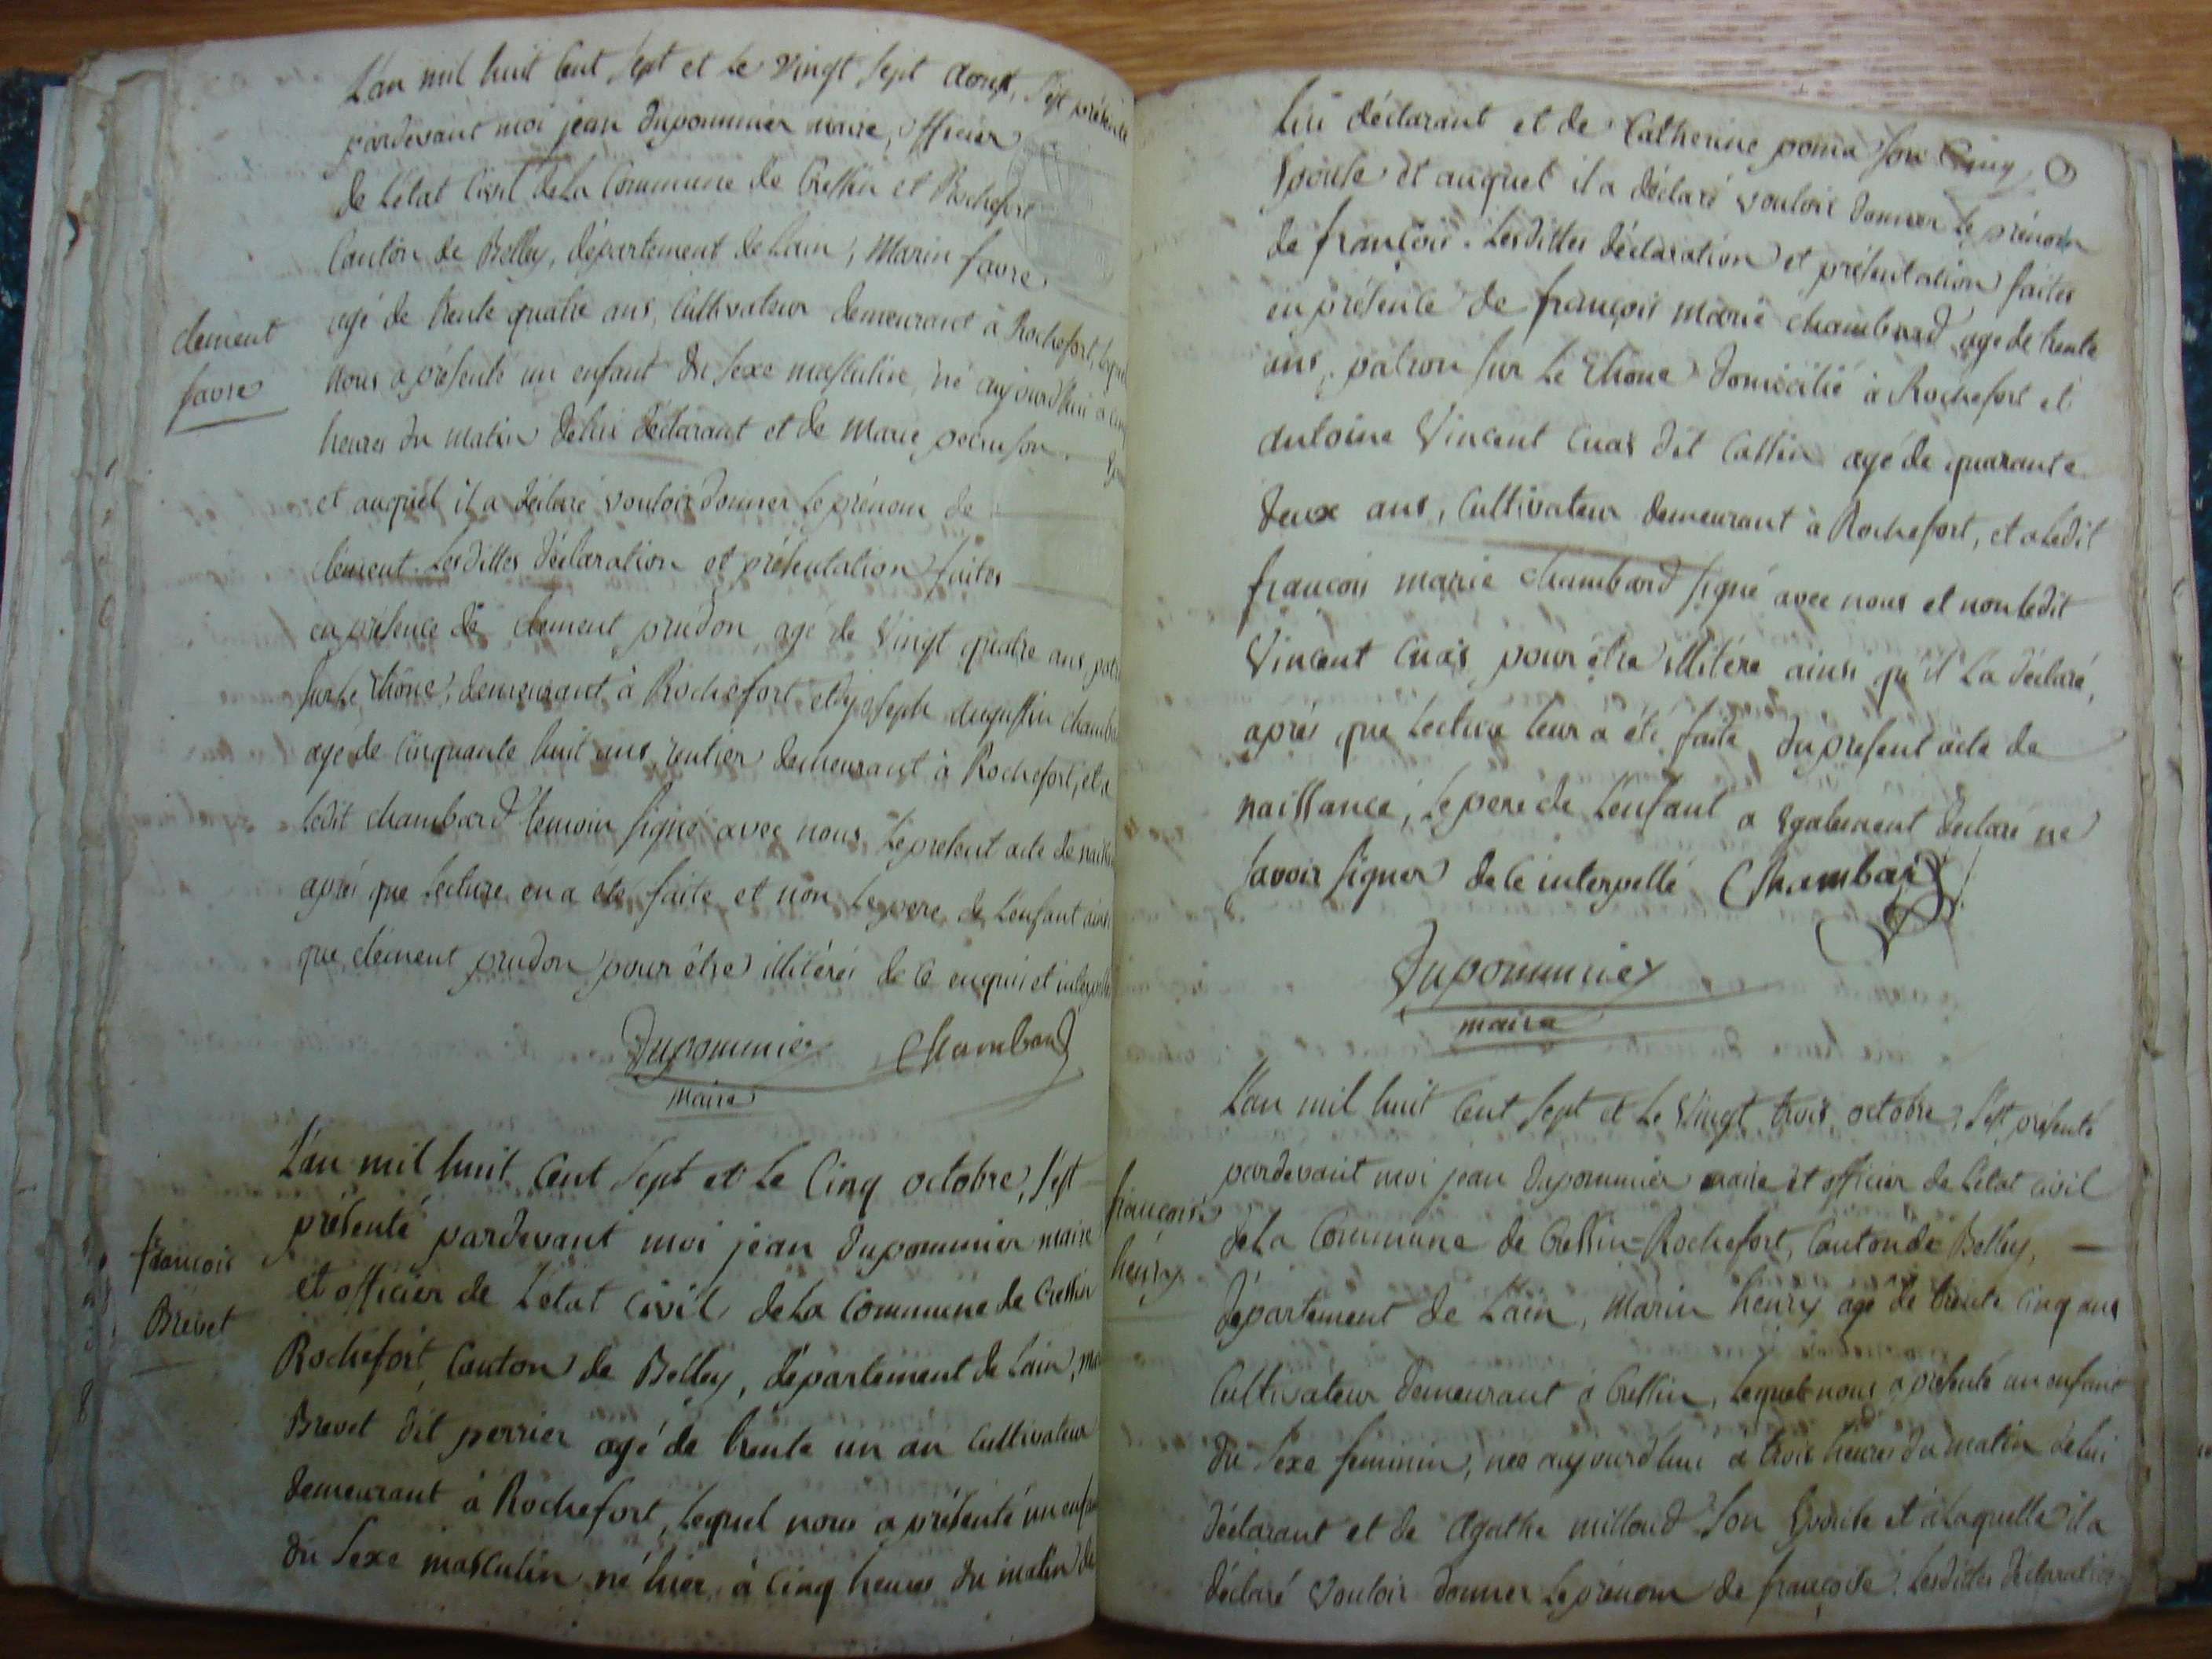 L'an mil huit Cent Sept et Le vingt Sept Aoust, S'est présenté
pardevant moi jean Dupommier maire, Officier
de L'état Civil de La Commune de Cressin et Rochefort
Canton de Belley, département de Lain, Marin favre
clement
favre
agé de trente quatre ans, Cultivateur demeurant à Rochefort, lequel
nous a présenté un enfant du Sexe masculin, né aujourd'hui à cinq
heures du matin de lui déclarant et de Marie
et auquel il a déclaré vouloir donner Le prénom de
clement. Lesdittes déclaration et présentation faites
en présence de clement prudon agé de Vingt quatre ans
Sur Le rhone, demeurant à Rochefort et joseph augustin
agé de Cinquante huit ans rentier demeurant à Rochefort, et a
ledit chambard temoin signé avec nous, Le présent acte de
après que Lecture en a été faite, et non Le pere de L'enfant ainsi
que clement prudon pour être illitérés de ce enquis et
Dupommier Chambard
maire
L'an mil huit Cent Sept et Le Cinq octobre, S'est
présenté pardevant moi jean Dupommier maire
et officier de L'état Civil de La Commune de Cressin
françois
Brevet
Rochefort, Canton de Belley, département de Lain,
Brevet dit perrier agé de trente un an Cultivateur
demeurant à Rochefort, Lequel nous a présenté un
du Sexe masculin né hier à Cinq heures du matin de
lui déclarant et de Catherine poma Son
Epouse et auquel il a déclaré vouloir donner Le prénom
de françois. Lesdittes déclaration et présentation faites
en présence de françois marie chambard agé de trente
ans, patron Sur Le Rhone domicilié à Rochefort et
antoine Vincent Cuas dit Cattin agé de quarante
deux ans, Cultivateur demeurant à Rochefort, et a Ledit
françois marie chambard signé avec nous et non Ledit
Vincent Cuas pour être illitéré ainsi qu'il L'a déclaré,
après que Lecture leur a été faite du présent acte de
naissance, Le pere de L'enfant a egalement déclaré ne
Savoir Signer de ce interpellé Chambard
Dupommier
maire
L'an mil huit Cent Sept et Le Vingt trois octobre, S'est présenté
pardevant moi jean Dupommier maire et officier de L'état civil
françoise
henry
de La Commune de Cressin-Rochefort, Canton de Belley,
département de Lain, Marin henry agé de trente Cinq ans
Cultivateur demeurant à Cressin, Lequel nous a présenté un enfant
du Sexe feminin, née aujourd'hui à trois heures du matin de lui
déclarant et de Agathe milloud Son Epouse et à Laquelle il a
déclaré vouloir donner Le prénom de françoise. Lesdittes déclaration